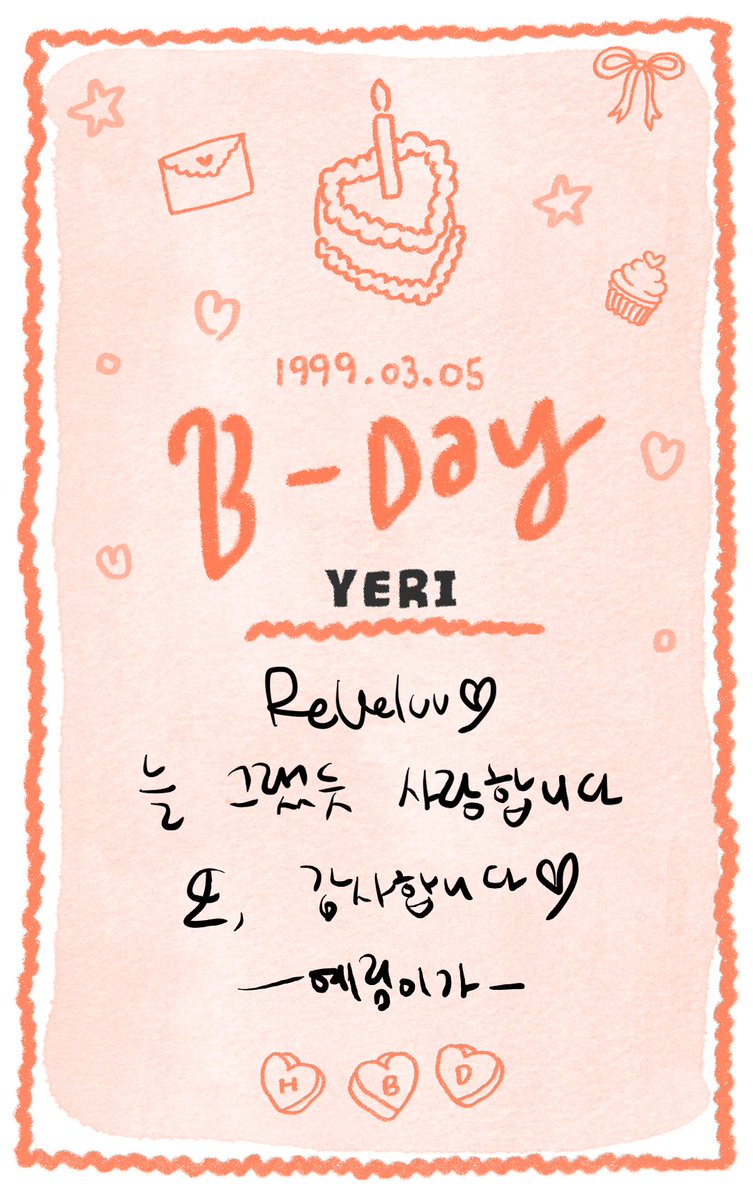 1999.03.05
B-Day
YERI
ReVeluv♡
늘 그랬듯 사랑합니다
또, 감사합니다♡
-예림이가-
H B D